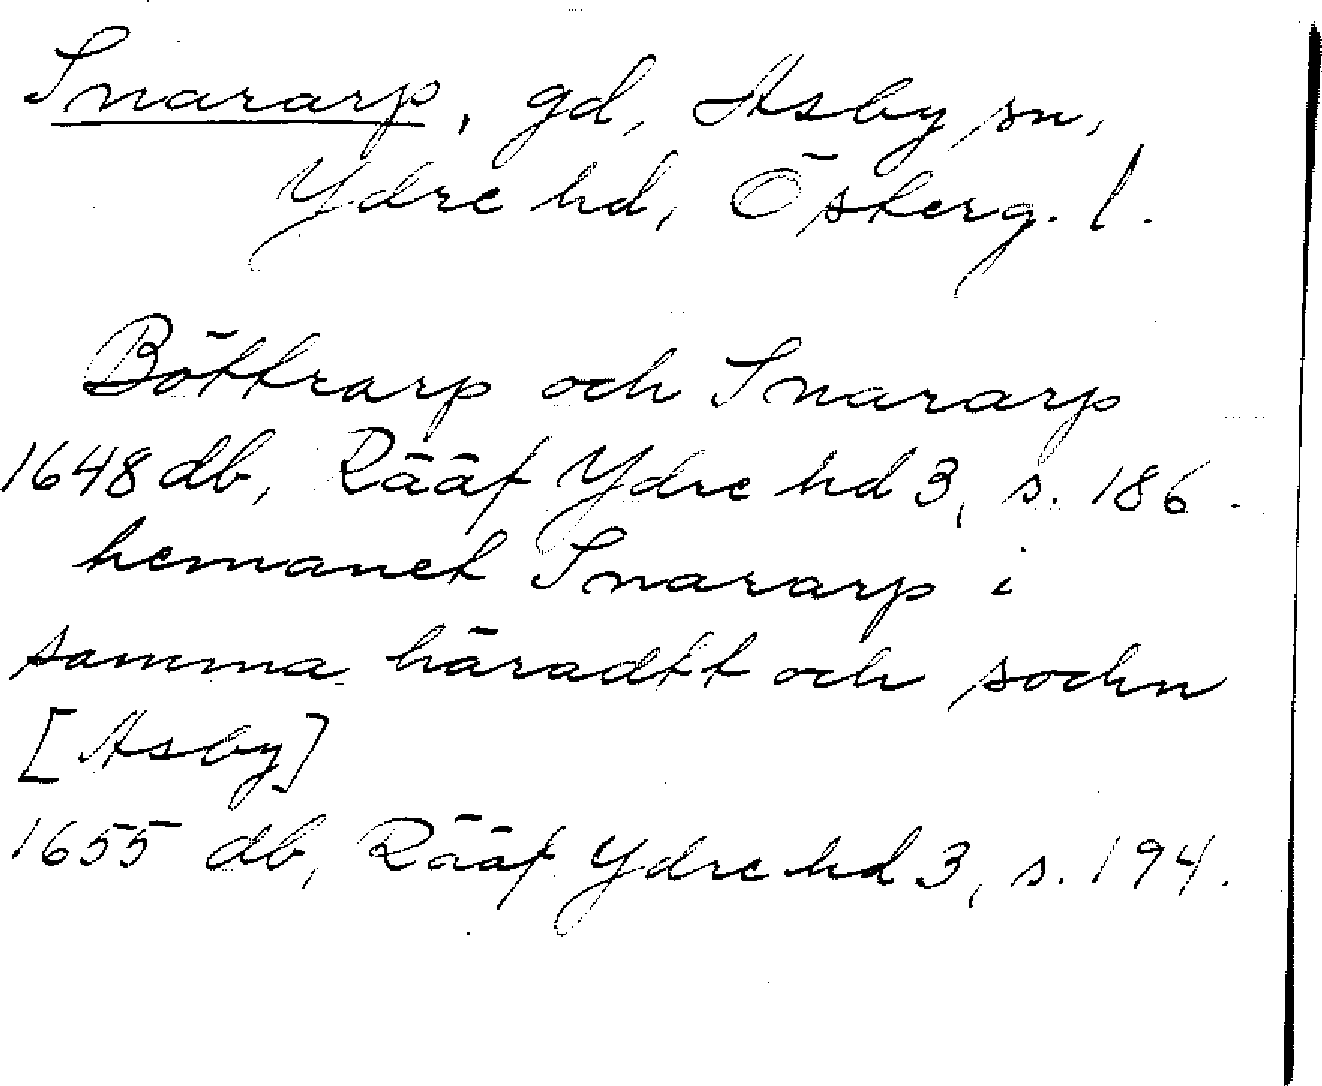 Snararp, gd, Asby sn,
Ydre hd, Österg. l.
Böttrarp och Snararp
1648 db, Rääf Ydre hd 3, s. 186.
hemanet Snararp i
samma häradtt och sochn
[Asby]
1655 db, Rääf Ydre hd 3, s. 194.